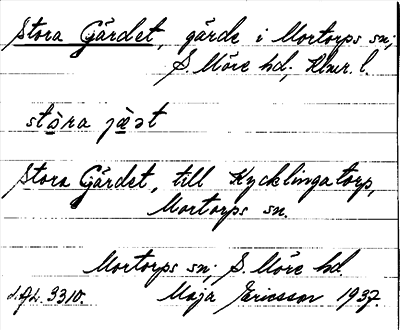 Stora Gärdet, gärde i Mortorps sn;
S. Möre hd; Klmr. l.
stòra jæ̀ət
Stora Gärdet, till Kycklingatorp,
Mortorps sn.
Mortorps sn; S. Möre hd.
3310. Maja Ericsson 1937.